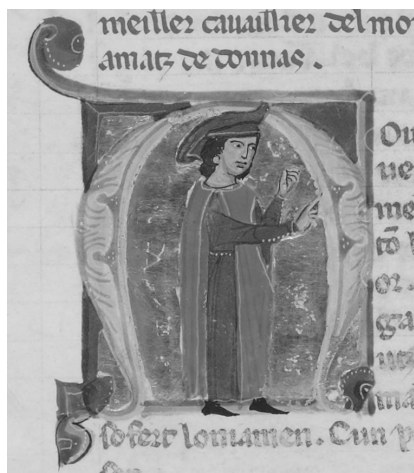 meiller cauaillier del mo
amatz de donnas .
Ou
ue
me
tō
or .
ga
utz
ma
sofert loniamen . Cun p